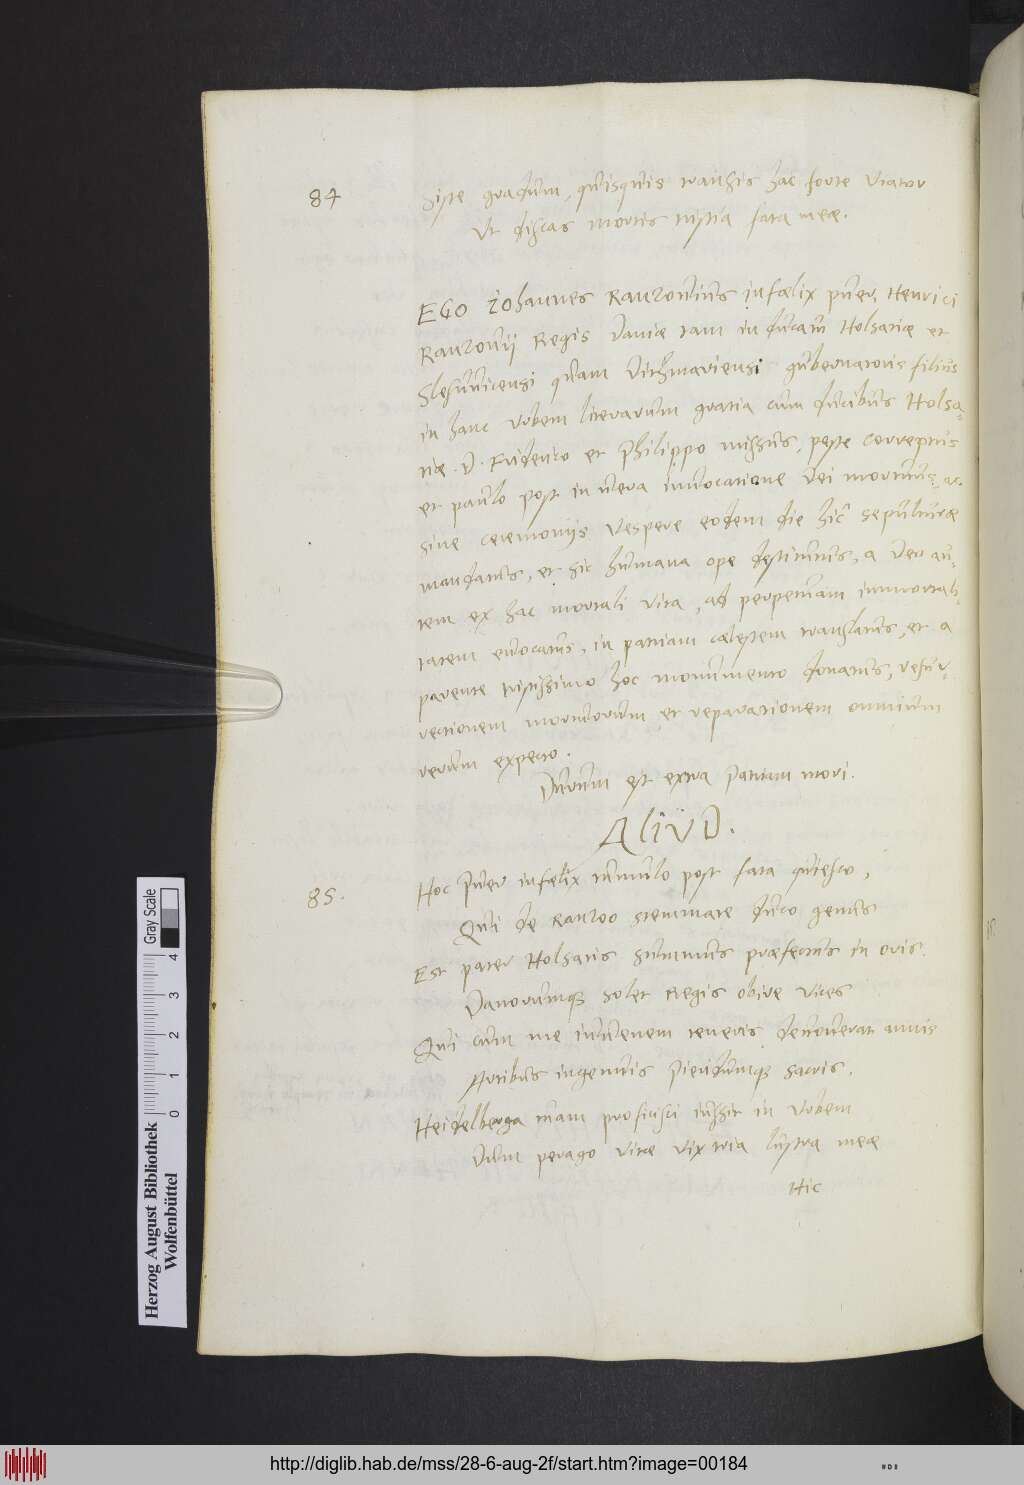 84
Siste gradum, quisquis transis hac forte viator
Ut discas mortis tristia fata meæ.
EGO Iohannes Ranzouius infælix puer, Henrici
Ranzouij Regis Daniæ tam in ducatu Holsatiæ et
Slesuuicensi quam Dithmariensi gubernatoris filius
in hanc Vrbem literarum gratia cum ducibus Holsa-
tiæ. D. Friderico et Philippo missus, peste correptus
et paulo post in uera inuocatione Dei mortuus, ac
sine ceremonijs Vespere eodem die hic sepulturæ
mandatus, et sic humana ope destitutus, a Deo au-
tem ex hac mortali vita, ad perpetuam immortali-
tatem euocatus, in patriam cælestem translatus, et a
parente tristissimo hoc monumento donatus, resur-
rectionem mortuorum et reparationem omnium
rerum expecto.
Durum est extra Patriam mori.
ALIVD.
85.
Hoc Puer infælix tumulo post fata quiesco,
Qui de Ranzoo stemmate duco genus
Est pater Holsatis summus præfectus in oris.
Danorumq solet Regis obire vices
Qui cum me iuuenem teneris deuouerat annis
Artibus ingenuis Pieridumq sacris.
Heidelberga tuam proficisci iussit in Vrbem
Dum perago vitæ vix tria lustra meæ
Hic
Herzog August Bibliothek
Wolfenbüttel
Gray Scale
0 1 2 3 4
http://diglib.hab.de/mss/28-6-aug-2f/start.htm?image=00184